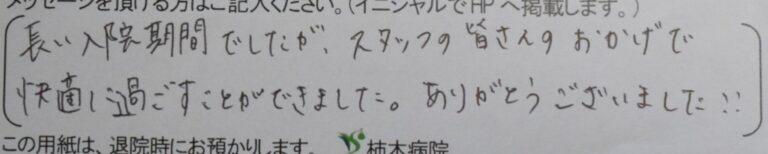 メッセージを頂ける方はご記入ください。(イニシャルでHPへ掲載します。)
長い入院期間でしたが、スタッフの皆さんのおかげで
快適に過ごすことができました。ありがとうございました!!
この用紙は、退院時にお預かりします。 柿木病院